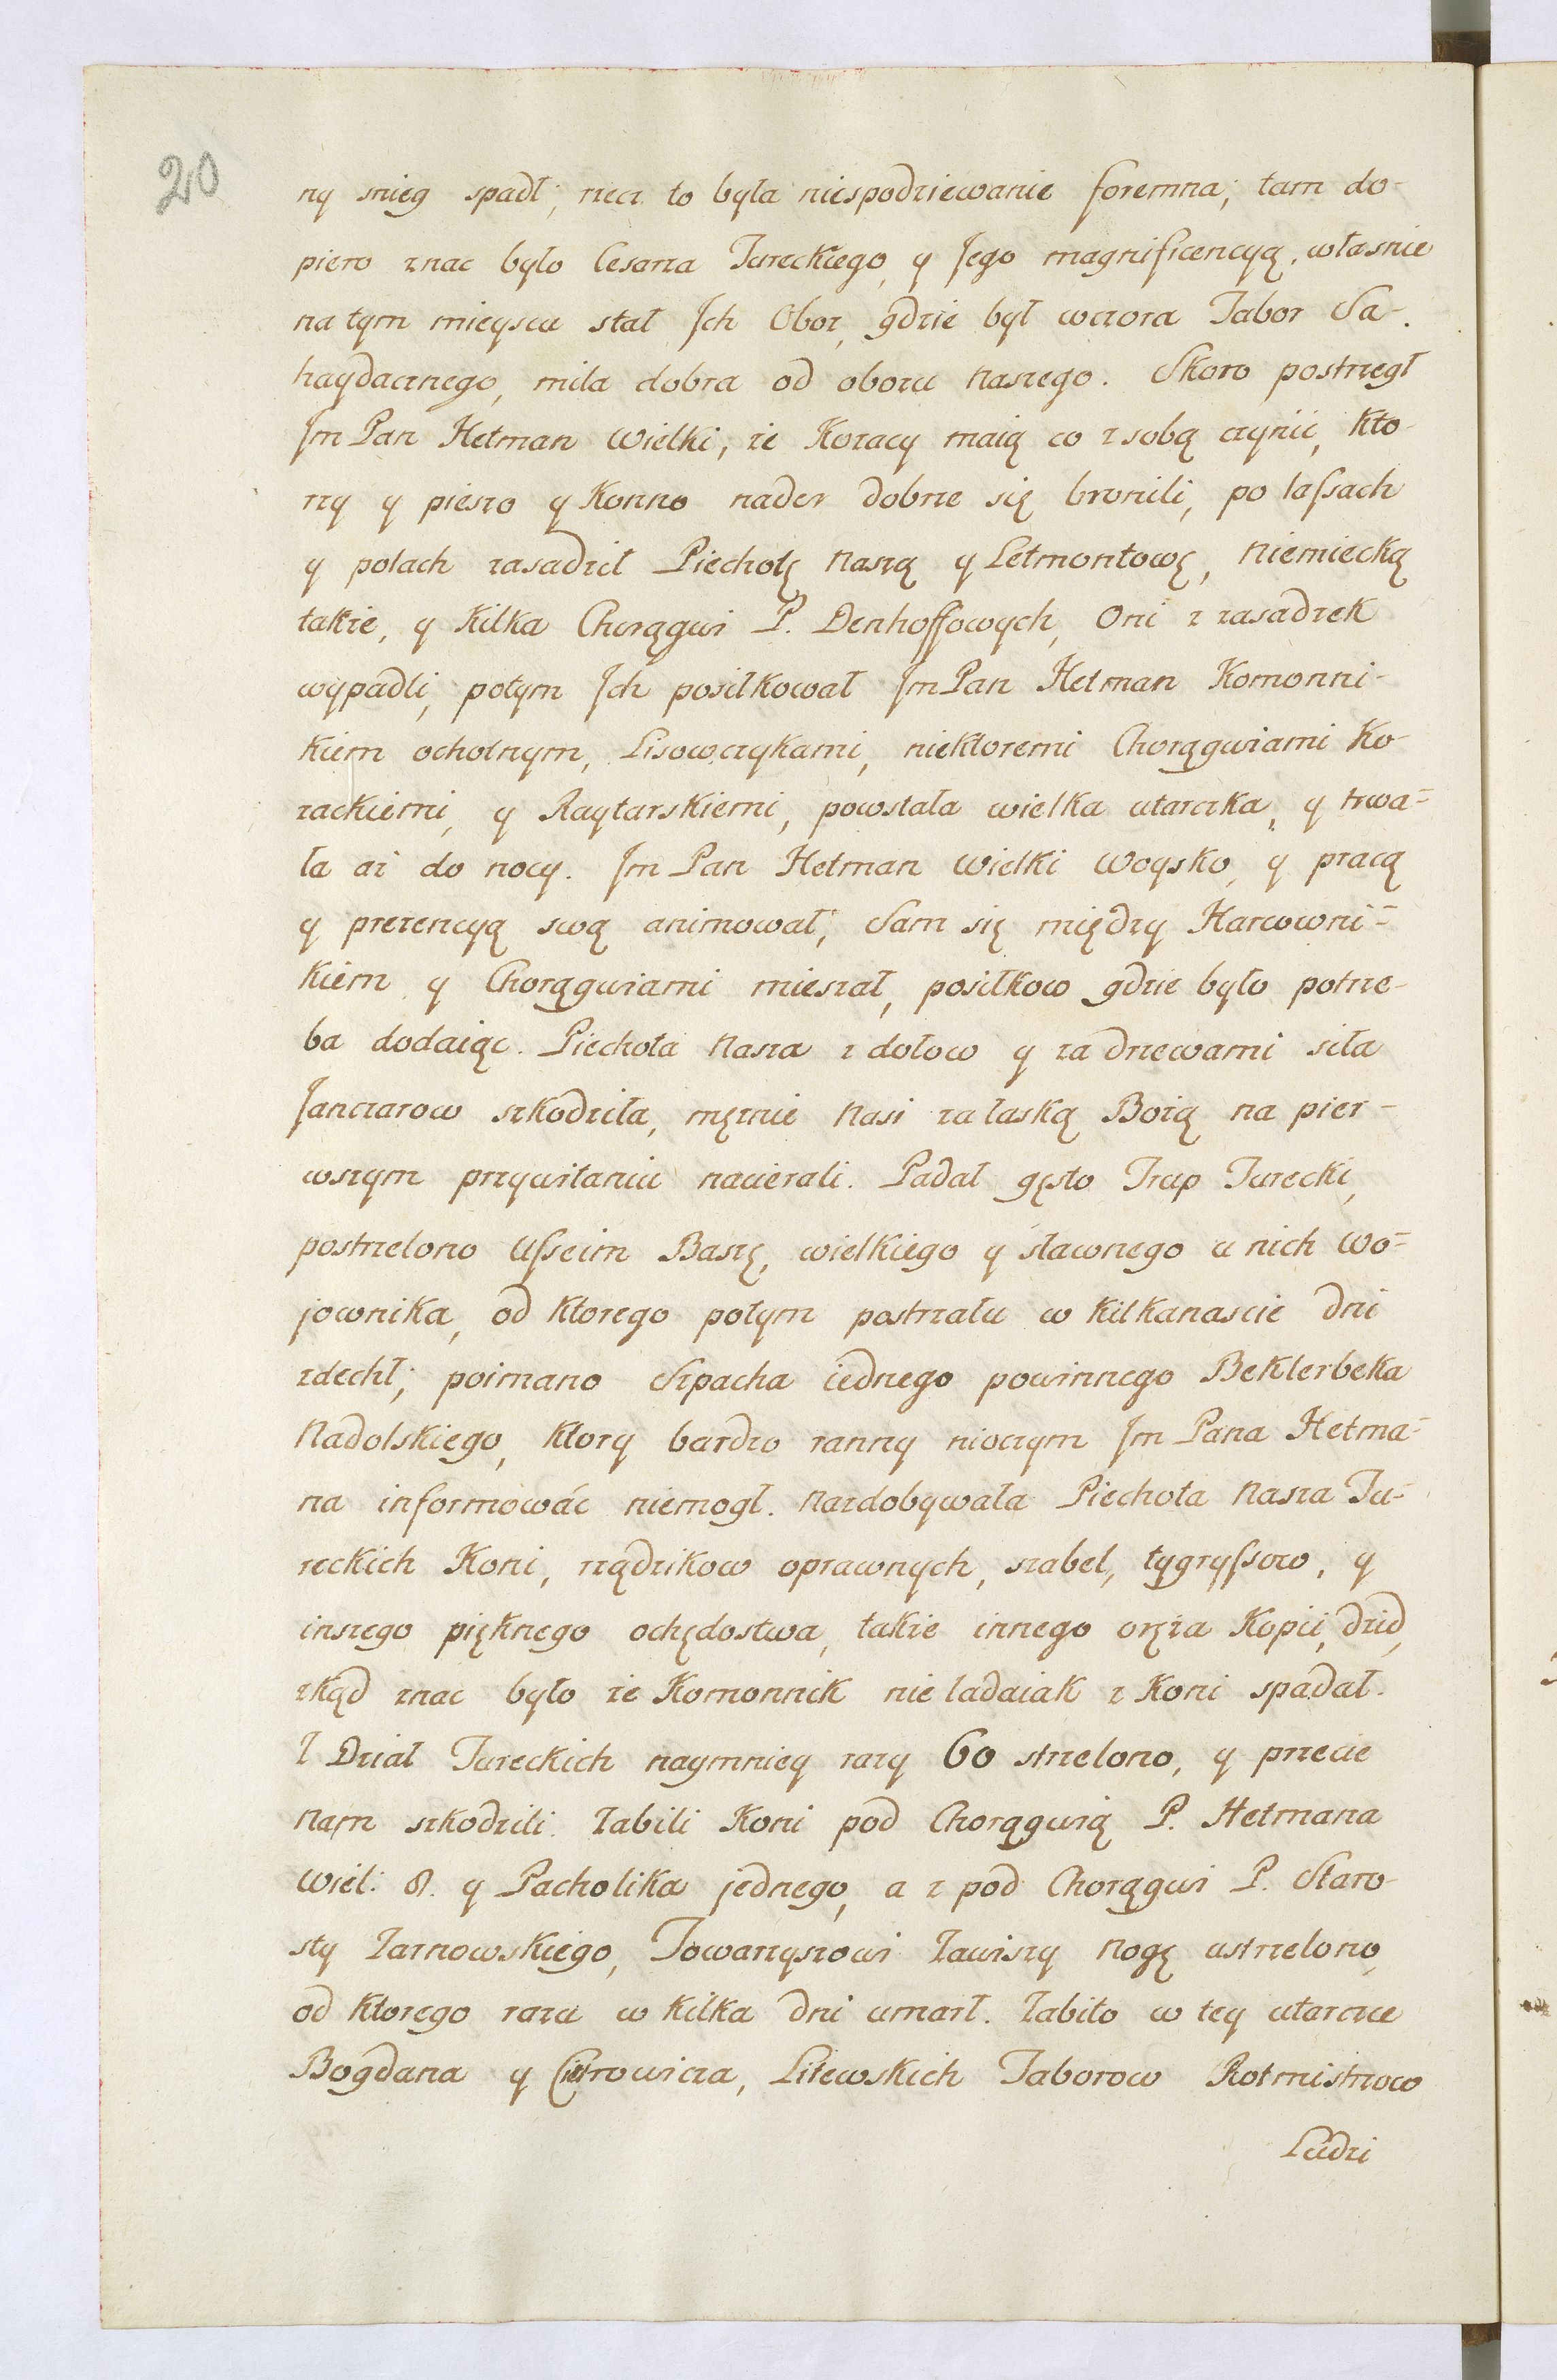 20
ny snieg spadł; rzecz to była niespodziewanie foremna; tam do-
piero znac było Cesarza Tureckiego, y Jego magnificencyą, własnie
na tym mieyscu stał Jch Oboz, gdzie był wczora Tabor Sa-
haydacznego, mila dobra od obozu naszego. Skoro postrzegł
Jm Pan Hetman Wielki, że Kozacy maią co z sobą czynić, kto-
rzy y pieszo y Konno nader dobrze się bronili, po lassach
y polach zasadził Piechotę naszą y Letmontowę, Niemiecką
także, y Kilka Chorągwi P. Denhoffowych, Oni z zasadzek
wypadli, potym Jch posiłkował Jm Pan Hetman Komonni-
kiem ochotnym, Lisowczykami, niektoremi Chorągwiami Ko-
zackiemi, y Raytarskiemi, powstała wielka utarczka, y trwa-
ła aż do nocy. Jm Pan Hetman Wielki Woysko, y pracą
y prezencyą swą animował, Sam się między Harcowni-
kiem y Chorągwiami mieszał, posiłkow gdzie było potrze-
ba dodaiąc. Piechota Nasza z dołow y za drzewami siła
Janczarow szkodziła, mężnie Nasi za łaską Bożą na pier-
wszym przywitaniu nacierali. Padał gęsto Trup Turecki,
postrzelono Usseim Baszę, wielkiego y sławnego u nich Wo-
jownika, od ktorego potym postrzału w Kilkanascie dni
zdechł; poimano Szpacha iednego powinnego Beklerbeka
Nadolskiego, ktory bardzo ranny nioczym Jm Pana Hetma-
na informowác niemogł. Nazdobywała Piechota Nasza Tu-
reckich Koni, rządzikow oprawnych, szabel, tygryssow, y
inszego pięknego ochędostwa, także innego oręża Kopii, dzid,
zkąd znac było że Komonnik nie ladaiak z Koni spadał.
Z Dział Tureckich naymniey razy 60 strzelono, y przecie
Nam szkodzili. Zabili Koni pod Chorągwią P. Hetmana
Wiel: y Pacholika jednego, a z pod Chorągwi P. Staro-
sty Zarnowskiego, Towarzyszowi Zawiszy Nogę ustrzelono,
od ktorego razu w Kilka dni umarł. Zabito w tey utarczce
Bogdana y Litewskich Taborow Rotmistrzow
Ludzi